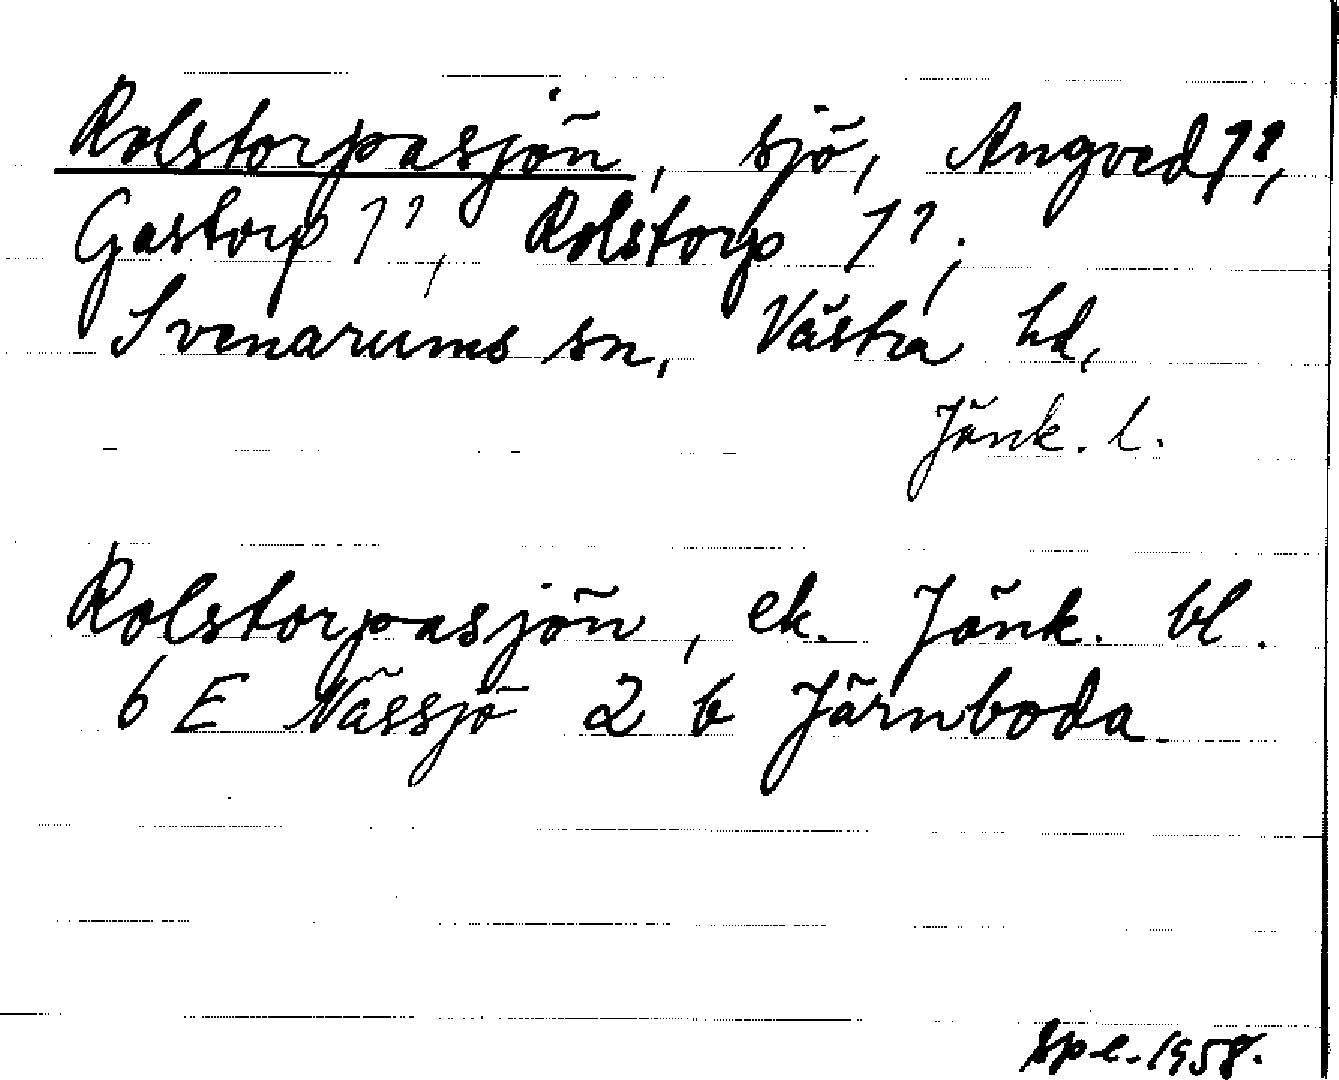 Rolstorpasjön, sjö, Angved 1?,
Gastorp 1?, Rolstorp 1?,
Svenarums sn, Västra hd,
Jönk. l.
Rolstorpasjön, ek. Jönk. bl.
6 E Nässjö 2 b Järnboda.
Sp l. 1958.